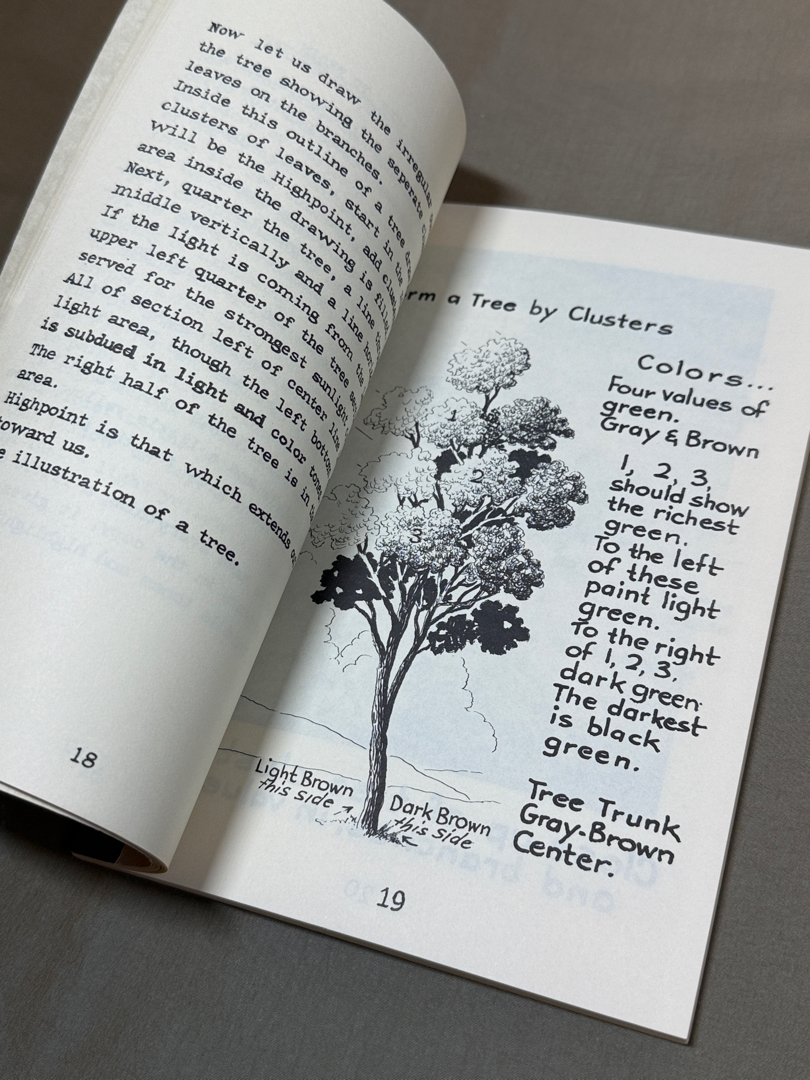 Now let us draw the irregular
the tree showing the seperate
leaves on the branches.
Inside this outline of a tree
clusters of leaves, start in the
will be the Highpoint, add
area inside the drawing is
Next, quarter the tree, a line
middle vertically and a line
If the light is coming from the
upper left quarter of the tree
served for the strongest sunlight
All of section left of center
light area, though the left
is subdued in light and color
The right half of the tree is in
area.
Highpoint is that which extends
toward us.
illustration of a tree.
18
a Tree by Clusters
Colors...
Four values of
green.
Gray & Brown
1, 2, 3,
should show
the richest
green.
To the left
of these
paint light
green.
To the right
of 1, 2, 3,
dark green.
The darkest
is black
green.
Tree Trunk
Gray-Brown
Center.
1
2
3
Light Brown
this side
Dark Brown
this side
19